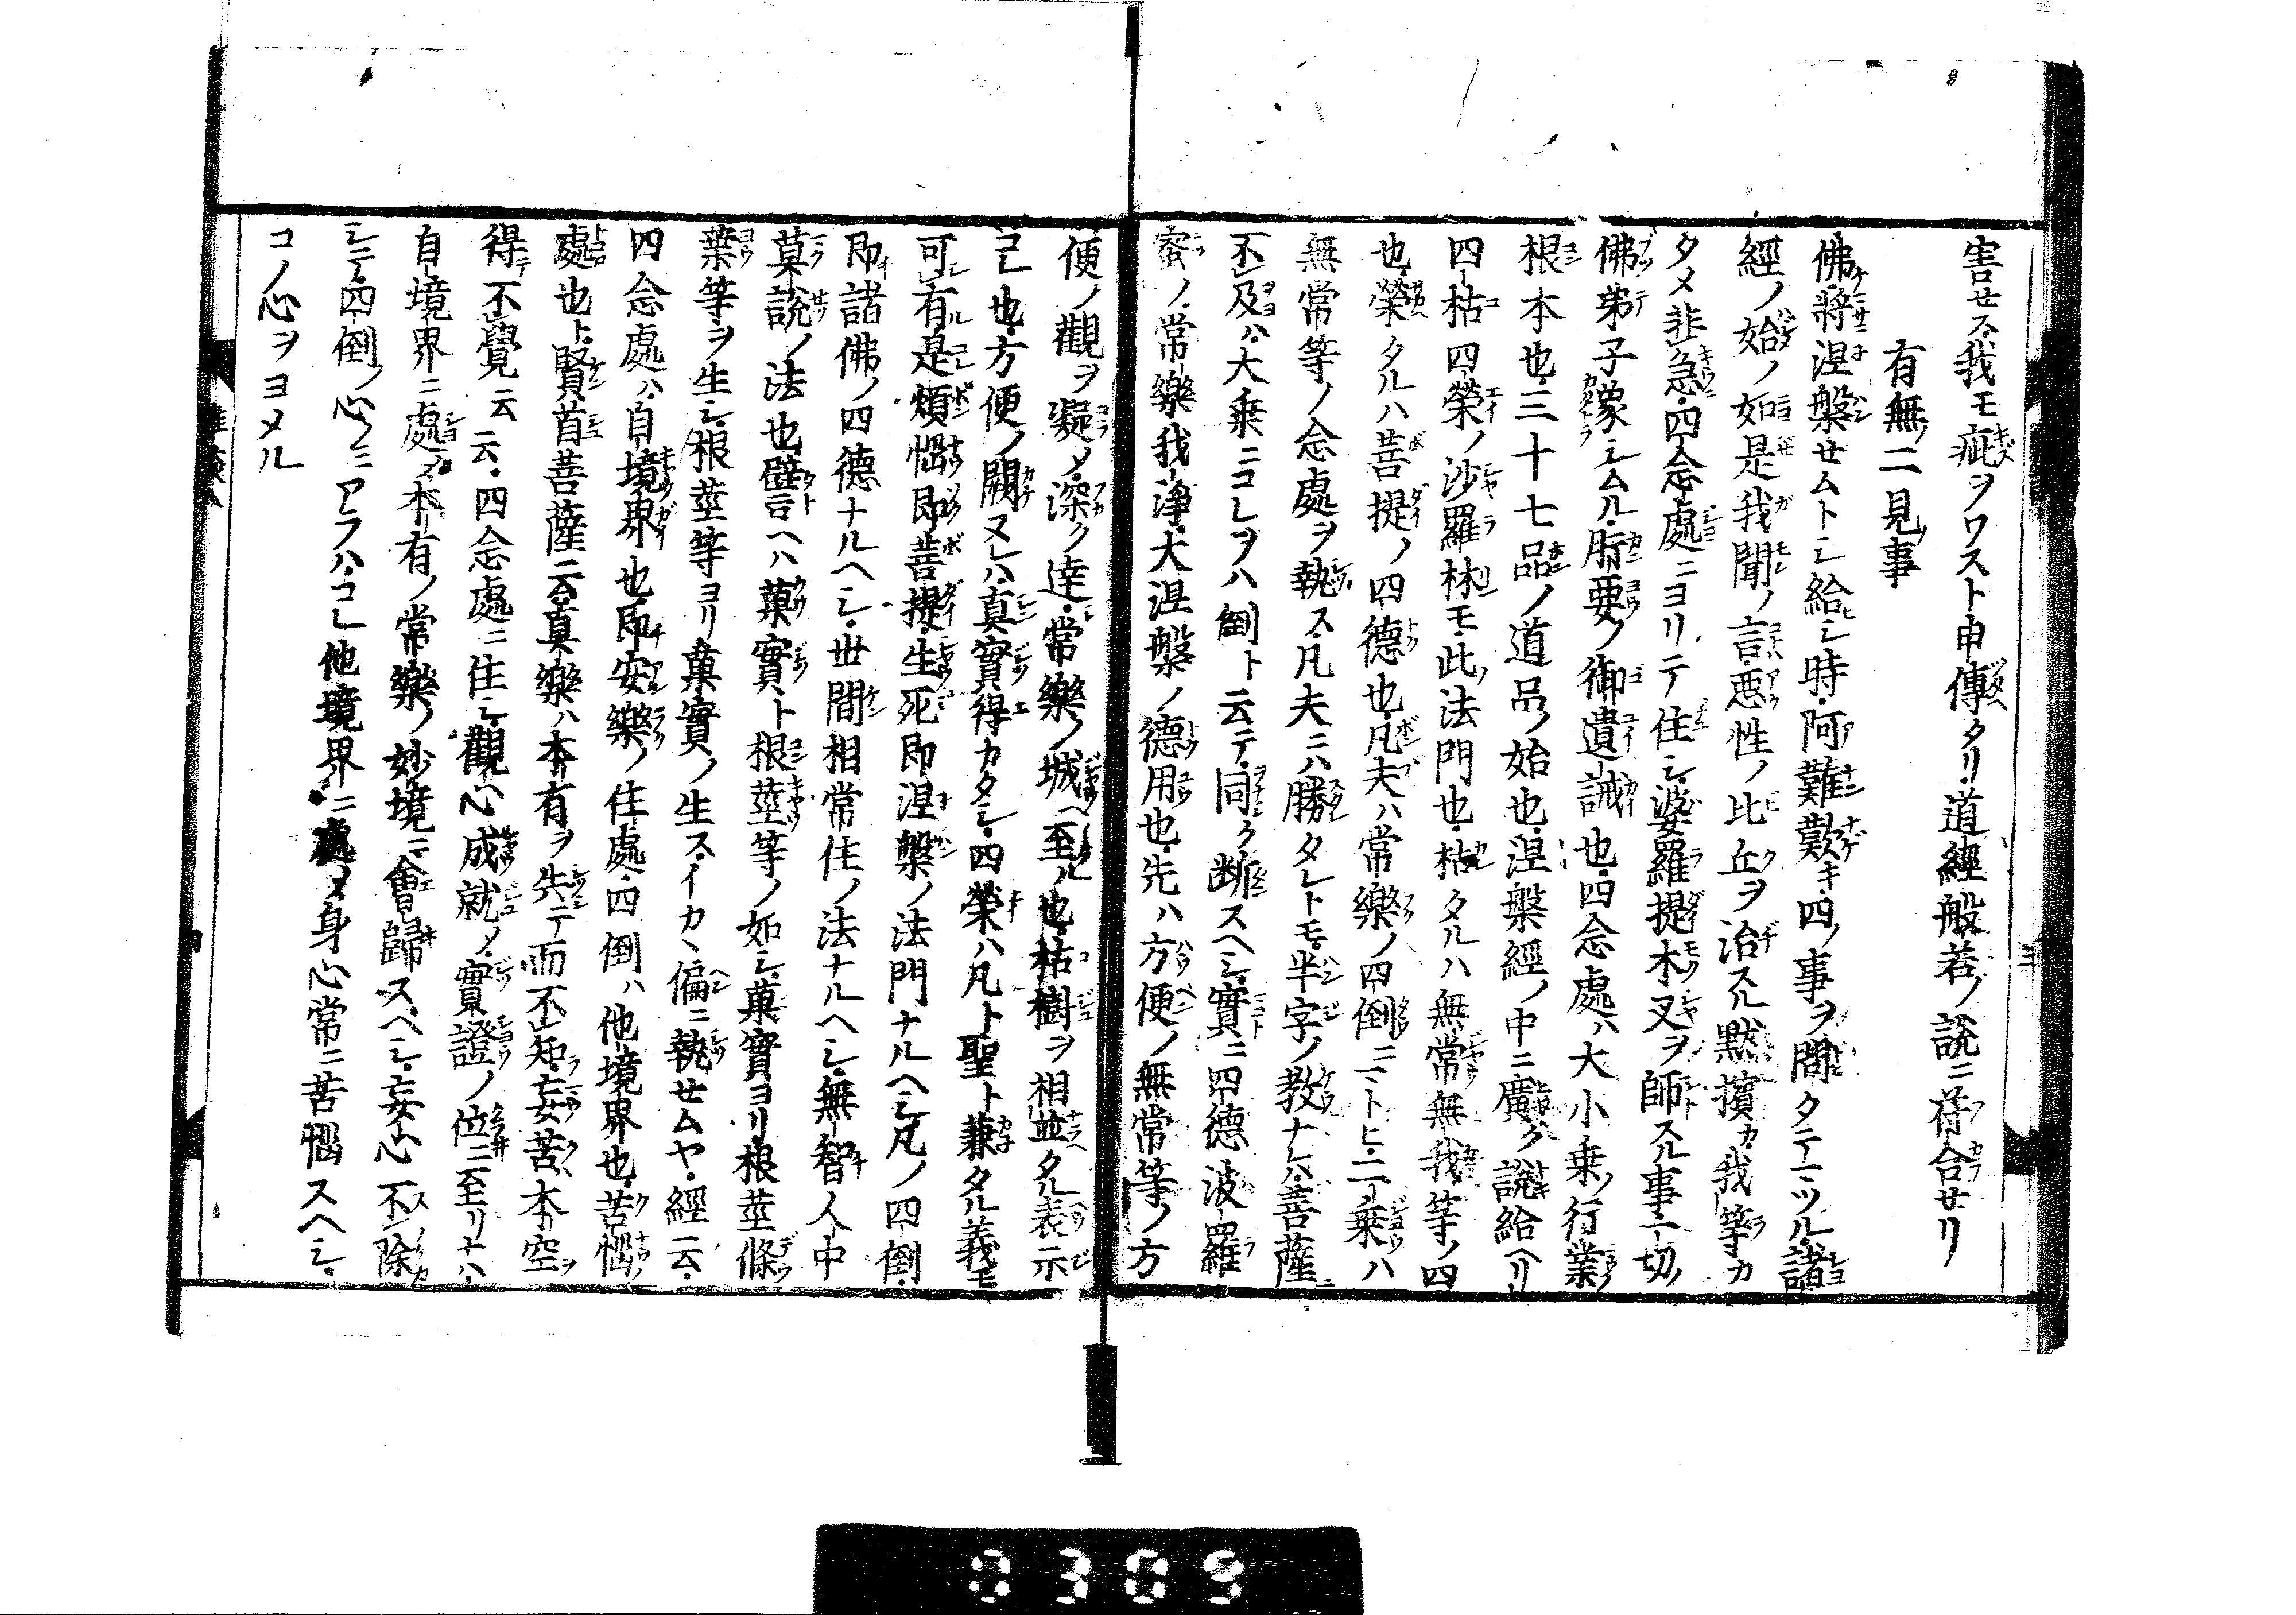 害セス我モ疵ヲワスト申傳タリ道經般若ノ説ニ苻合セリ
有無ノ二見事
佛將涅槃セムトシ給シ時阿難歎キ四ノ事ヲ問タテマツル諸
經ノ始ノ如是我聞ノ言悪性ノ比丘ヲ治スル黙擯カ我等カ
タメ韭急四念處ニヨリテ住シ婆羅提木叉ヲ師スル事一切ノ
佛弟子象シムル肝要ノ御遺誡也四念處ハ大小乗ノ行業
根本也三十七品ノ道品ノ始也涅槃經ノ中ニ廣ク説給ヘリ
四枯四榮ノ沙羅林モ此法門也枯タルハ無常無我等ノ四
也榮タルハ菩提ノ四德也凡夫ハ常樂ノ四倒ニマトヒ二乗ハ
無常等ノ念處ヲ執ス凡夫ニハ勝タレトモ半字ノ教ナレハ菩薩ニ
不及ハ大乗ニコレヲハ倒ト云テ同ク斷スヘシ實ニ四德波羅
蜜ノ常樂我淨大涅槃ノ德用也先ハ方便ノ無常等ノ方
便ノ觀ヲ凝メ深ク達常樂ノ城ヘ至ル也枯樹ヲ相並タル表示
コレ也方便ノ闕ヌレハ真實得カタシ四榮ハ凡ト聖ト兼タル義モ
可有是煩惱即菩提生死即涅槃ノ法門ナルヘシ凡ノ四倒
即諸佛ノ四德ナルヘシ世間相常住ノ法ナルヘシ無智人中
莫説ノ法也譬ヘハ菓實ト根莖等ノ如シ菓實ヨリ根莖條
葉等ヲ生シ根莖等ヨリ菓實ノ生スイカヽ偏ニ執セムヤ經云
四念處ハ自境界也即安樂ノ住處四倒ハ他境界也苦惱ノ
處也ト賢首菩薩云真樂ハ本有ヲ失テ而不知妄苦本空ヲ
得テ不覺云云四念處ニ住シ觀心成就メ實證ノ位ニ至リナハ
自境界ニ處メ本有ノ常樂ノ妙境ニ會歸スヘシ妄心不除
シテ四倒ノ心ノミアラハコレ他境界ニ處メ身心常ニ苦惱スヘシ
コノ心ヲヨメル